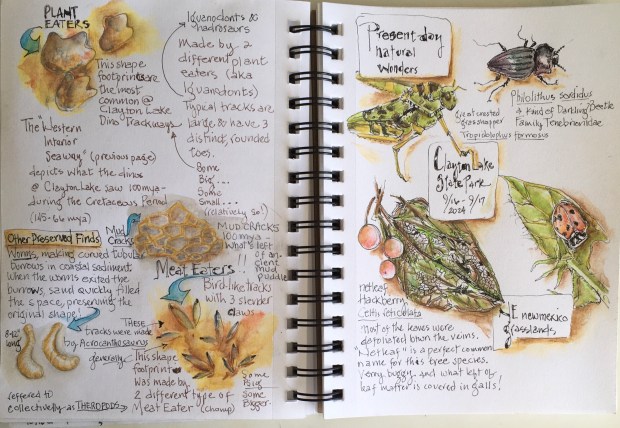 PLANT
EATERS
This shape
footprints are
the most
common @
Clayton Lake
Dino Trackways
Iguanodonts &
hadrosaurs
Made by 2
different plant
eaters (aka
Iguanodonts)
Typical tracks are
large & have 3
distinct, rounded
toes.
Some
Big...
Some
Small...
(relatively so!)
The "Western
Interior
Seaway" (previous page)
depicts what the dinos
@ Clayton Lake saw 100mya-
during the Cretaceous Period
(145-66 mya)
Mud
Cracks
MUD CRACKS
100mya -
What's left
of an-
cient
mud
puddle
!!
Other Preserved Finds
Worms, making curved tubular
burrows in coastal sediment
When the worms exited the
burrows, sand quickly filled
the space, preserving the
original shape!
8-12"
long
Meat Eaters!
Bird-like tracks
with 3 slender
claws.
THESE
tracks were made
by Acrocanthosaurus
generously
This shape
footprint
Was made by
2 different type of
Meat Eater (chomp)
Some
Bigs
Some
Bigger.
(referred to
collectively as THEROPODS →
Present-day
natural
Wonders
Philolithus sordidus
A kind of Darkling Beetle
Family Tenebrionidae
Great crested
grasshopper
Tropidolophus
formosus
Clayton Lake
State Park
9/16 - 9/17
2024
netleaf
Hackberry
Celtis reticulata
Most of the leaves were
defoliated down the veins.
"Netleaf" is a perfect common
name for this tree species.
Very buggy. and what left of
leaf matter is covered in galls!
NE new mexico
grasslands